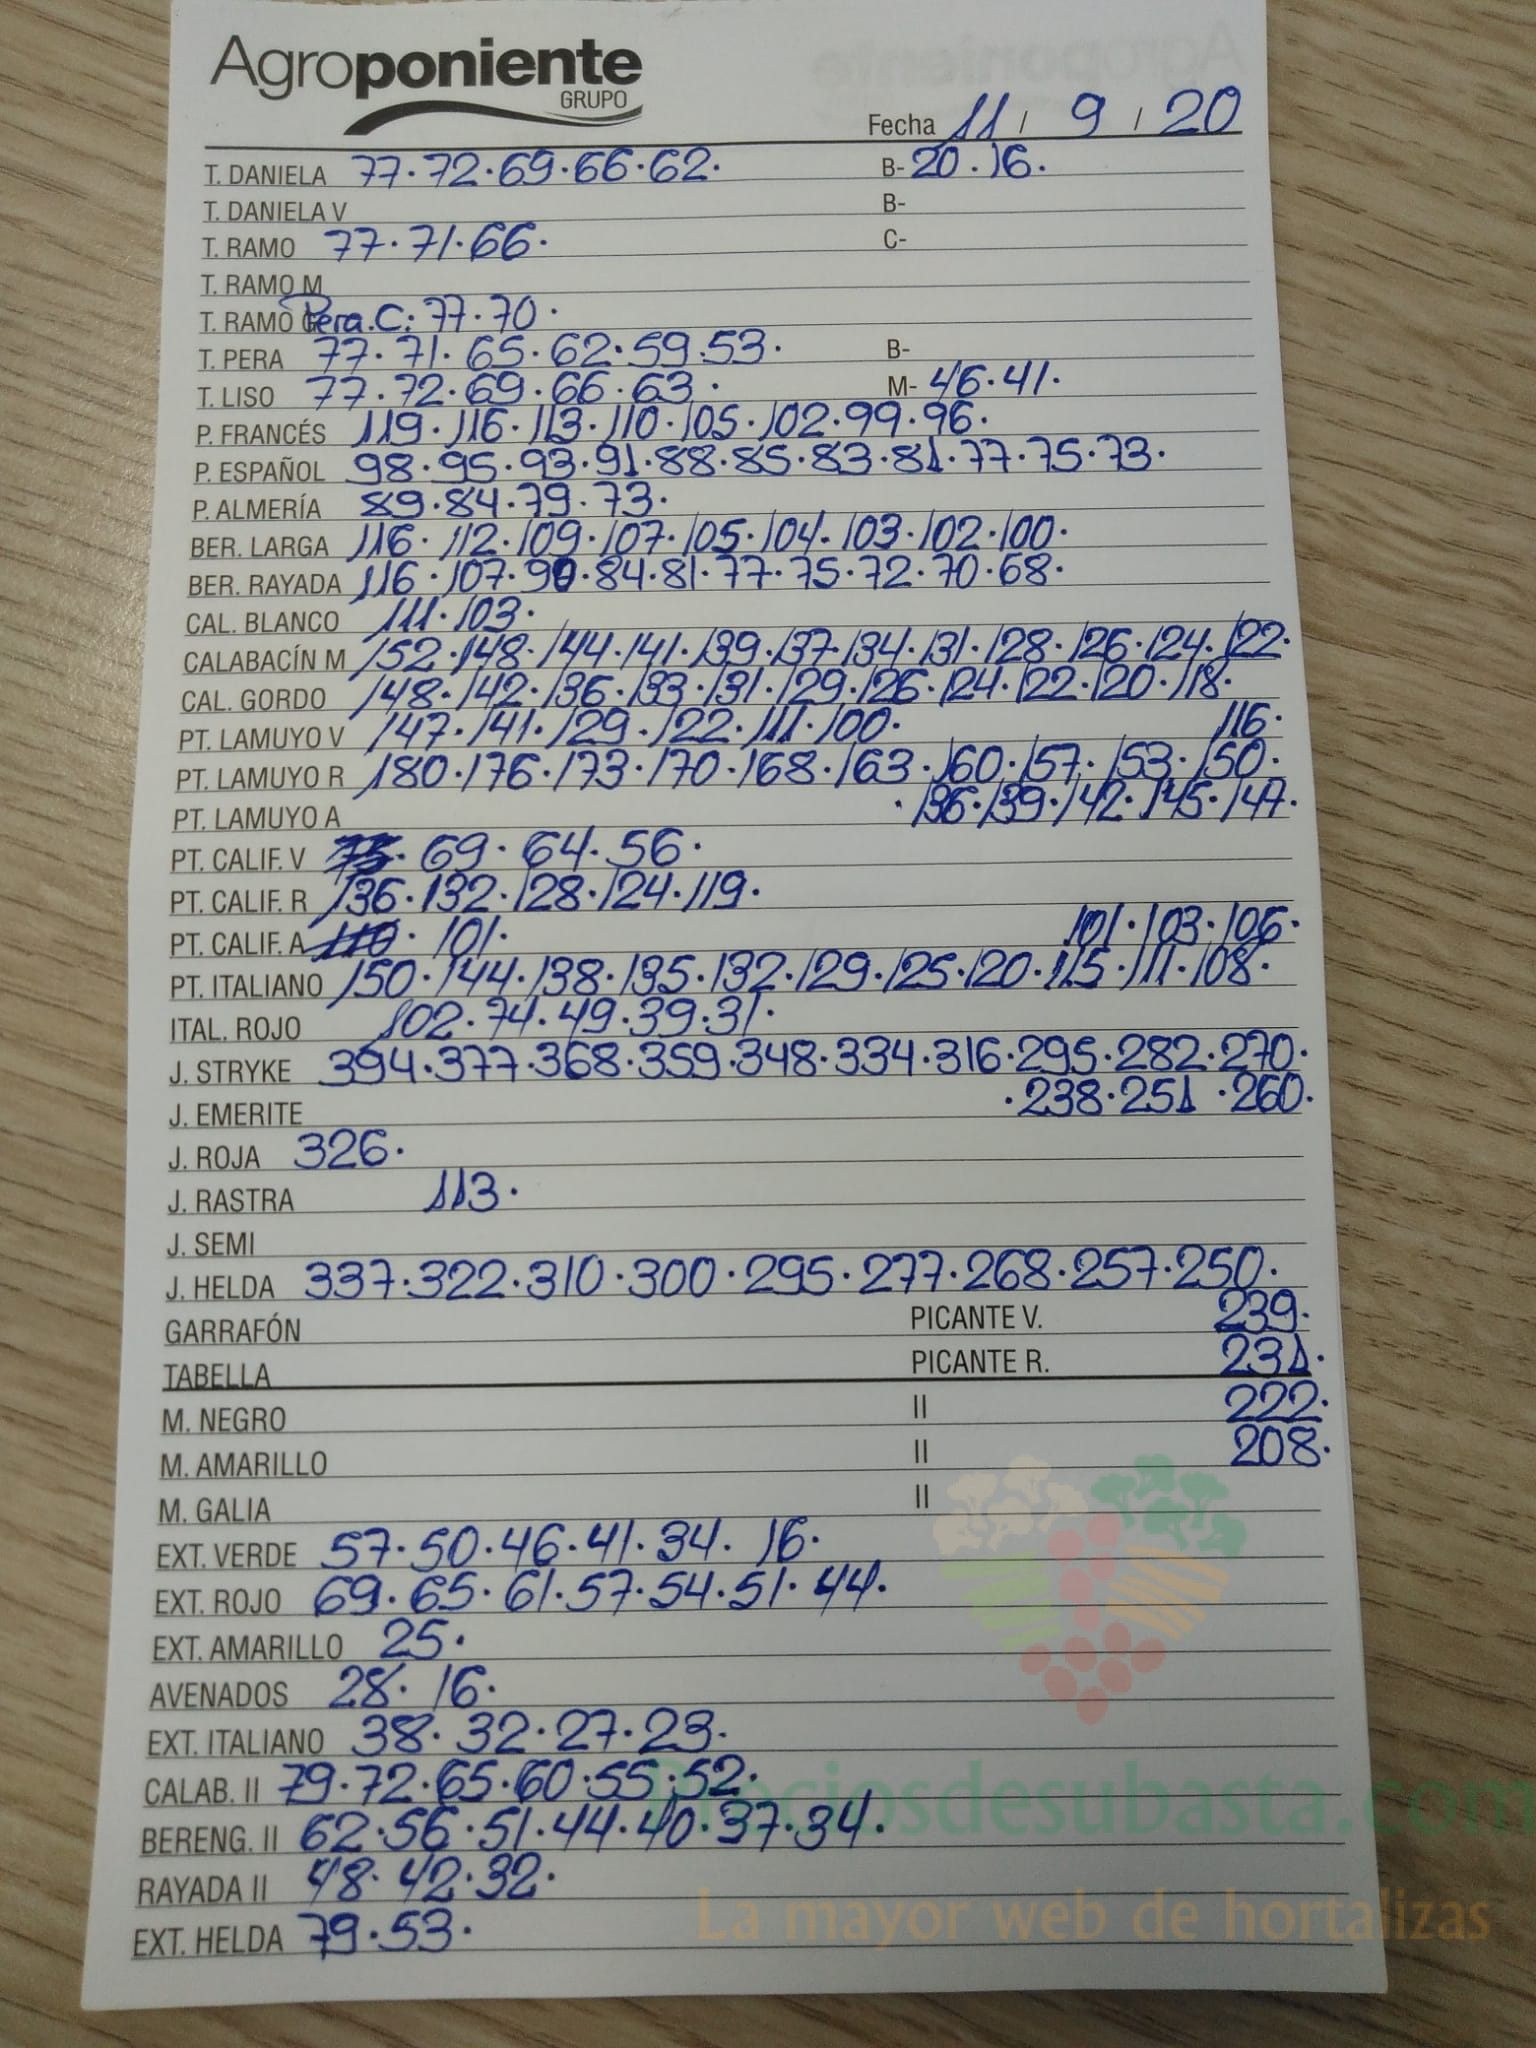 Agroponiente
GRUPO
Fecha 11 / 9 / 20
T. DANIELA 77.72.69.66.62. B- 20.16.
T. DANIELA V B-
T. RAMO 77.71.66. C-
T. RAMO M
T. RAMO G Pera.C: 77.70.
T. PERA 77.71.65.62.59.53. B-
T. LISO 77.72.69.66.63. M- 46.41.
P. FRANCÉS 119.116.113.110.105.102.99.96.
P. ESPAÑOL 98.95.93.91.88.85.83.81.77.75.73.
P. ALMERÍA 89.84.79.73.
BER. LARGA 116.112.109.107.105.104.103.102.100.
BER. RAYADA 116.107.90.84.81.77.75.72.70.68.
CAL. BLANCO 111.103.
CALABACÍN M 152.148.144.141.139.137.134.131.128.126.124.122.
CAL. GORDO 148.142.136.133.131.129.126.124.122.120.118.
PT. LAMUYO V 147.141.129.122.111.100. 116.
PT. LAMUYO R 180.176.173.170.168.163.160.157.153.150.
PT. LAMUYO A .136.139.142.145.147.
PT. CALIF. V 69.64.56.
PT. CALIF. R 136.132.128.124.119.
PT. CALIF. A 110. 101. 101.103.106.
PT. ITALIANO 150.144.138.135.132.129.125.120.115.111.108.
ITAL. ROJO 102.74.49.39.31.
J. STRYKE 394.377.368.359.348.334.316.295.282.270.
J. EMERITE .238.251.260.
J. ROJA 326.
J. RASTRA 113.
J. SEMI
J. HELDA 337.322.310.300.295.277.268.257.250.
GARRAFÓN PICANTE V. 239.
TABELLA PICANTE R. 231.
M. NEGRO II 222.
M. AMARILLO II 208.
M. GALIA II
EXT. VERDE 57.50.46.41.34. 16.
EXT. ROJO 69.65.61.57.54.51.44.
EXT. AMARILLO 25.
AVENADOS 28. 16.
EXT. ITALIANO 38.32.27.23.
CALAB. II 79.72.65.60.55.52.
Preciosdesubasta.com
BERENG. II 62.56.51.44.40.37.34.
RAYADA II 48.42.32.
La mayor web de hortalizas
EXT. HELDA 79.53.